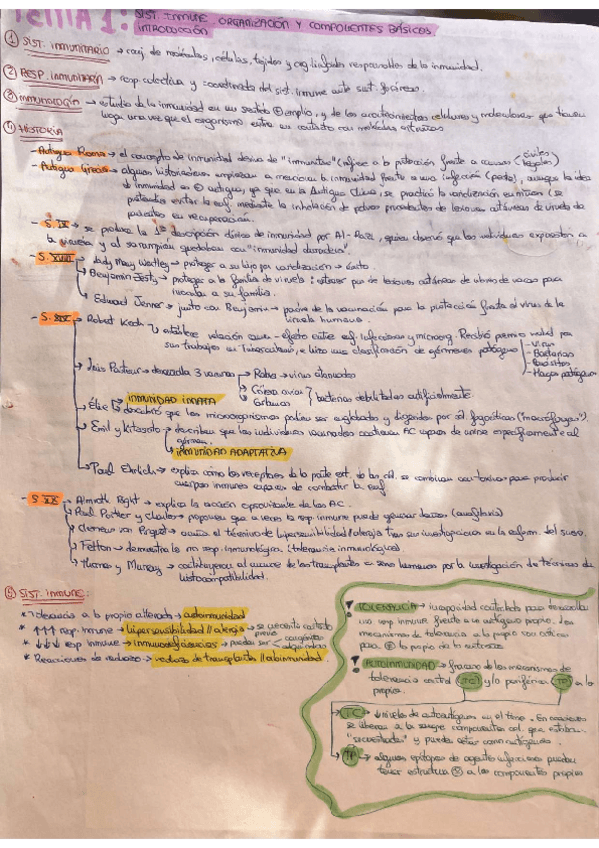 TEMA 1: SIST. INMUNE. ORGANIZACIÓN Y COMPONENTES BÁSICOS
INTRODUCCIÓN
① SIST. INMUNITARIO → conj. de moléculas, células, tejidos y org. linfoides responsables de la inmunidad.
② RESP. INMUNITARIA → resp. colectiva y coordinada del sist. inmune ante sust. foráneas.
③ INMUNOLOGÍA → estudio de la inmunidad en un sentido ⊕ amplio, y de los acontecimientos celulares y moleculares que tienen
lugar una vez que el organismo entra en contacto con moléculas extrañas
④ HISTORIA
- Antigua Roma → el concepto de inmunidad deriva de "inmunitas" (refiere a la protección frente a causas (civiles legales)
- Antigua Grecia → algunos historiadores empiezan a mencionar la inmunidad frente a una infección (peste), aunque la idea
d inmunidad es ⊕ antigua, ya que en la Antigua China, se practicó la variolización en niños (se
pretendía evitar la enf. mediante la inhalación de polvos procedentes de lesiones cutáneas de viruela de
pacientes en recuperación.
- S. IX → se produce la 1ª descripción clínica de inmunidad por Al-Razi, quien observó que los individuos expuestos a
la viruela y al sarampión quedaban con "inmunidad duradera".
- S. XVIII → Lady Mary Wortley → protege a su hijo por variolización → éxito.
Benjamin Jesty → protege a la familia de viruela: extraer pus de lesiones cutáneas de ubres de vacas para
inocular a su familia.
Edward Jenner → junto con Benjamin → padre de la vacunación para la protección frente al virus de la
viruela humana.
- S. XIX → Robert Koch → establece relación causa - efecto entre enf. infecciosas y microorg. Recibió premio nobel por
sus trabajos en Tuberculosis, e hizo una clasificación de gérmenes patógenos
- Virus
- Bacterias
- Parásitos
- Hongos patógenos
Luis Pasteur → desarrolla 3 vacunas → Rabia → virus atenuados
Cólera aviar
Carbunco } bacterias debilitadas artificialmente.
INMUNIDAD INNATA
Élie → descubrió que los microorganismos podían ser englobados y digeridos por cél. fagocíticas ("macrófagos")
Emil y Kitasato → describen que los individuos vacunados contienen AC capaces de unirse específicamente al
germen.
INMUNIDAD ADAPTATIVA
Paul Ehrlich → explica cómo los receptores de la parte ext. de las cél. se combinan con toxinas para producir
cuerpos inmunes capaces de combatir la enf.
- S. XX → Almroth Right → explica la acción opsonizante de los AC.
Paul Portier y Charles → proponen que a veces la resp. inmune puede generar daños (anafilaxia)
Clemens von Pirquet → acuña el término de hipersensibilidad / alergia tras sus investigaciones en la enferm. del suero.
Felton → demuestra la no resp. inmunológica (tolerancia inmunológica)
Thomas y Murray → contribuyeron al avance de los trasplantes en seres humanos por la investigación de técnicas de
histocompatibilidad.
⑤ SIST. INMUNE:
* Tolerancia a lo propio alterada → autoinmunidad
* ↑↑↑ resp. inmune → hipersensibilidad // alergia → se necesita contacto previo
* ↓↓↓ resp. inmune → inmunodeficiencias → pueden ser congénitas adquiridas
* Reacciones de rechazo → rechazo de transplante // aloinmunidad.
! TOLERANCIA → incapacidad controlada para desarrollar
una resp. inmune frente a un antígeno propio. Los
mecanismos de tolerancia a lo propio son críticos
para ≠ lo propio de lo extraño
! AUTOINMUNIDAD → fracaso de los mecanismos de
tolerancia central (TC) y/o periférica (TP) a lo
propio.
TC → ↓ niveles de autoantígenos en el timo. En ocasiones
se liberan a la sangre componentes cel. que estaban
"secuestrados" y pueden actuar como antígenos.
TP → algunos epítopos de agentes infecciosos pueden
tener estructura a los componentes propios